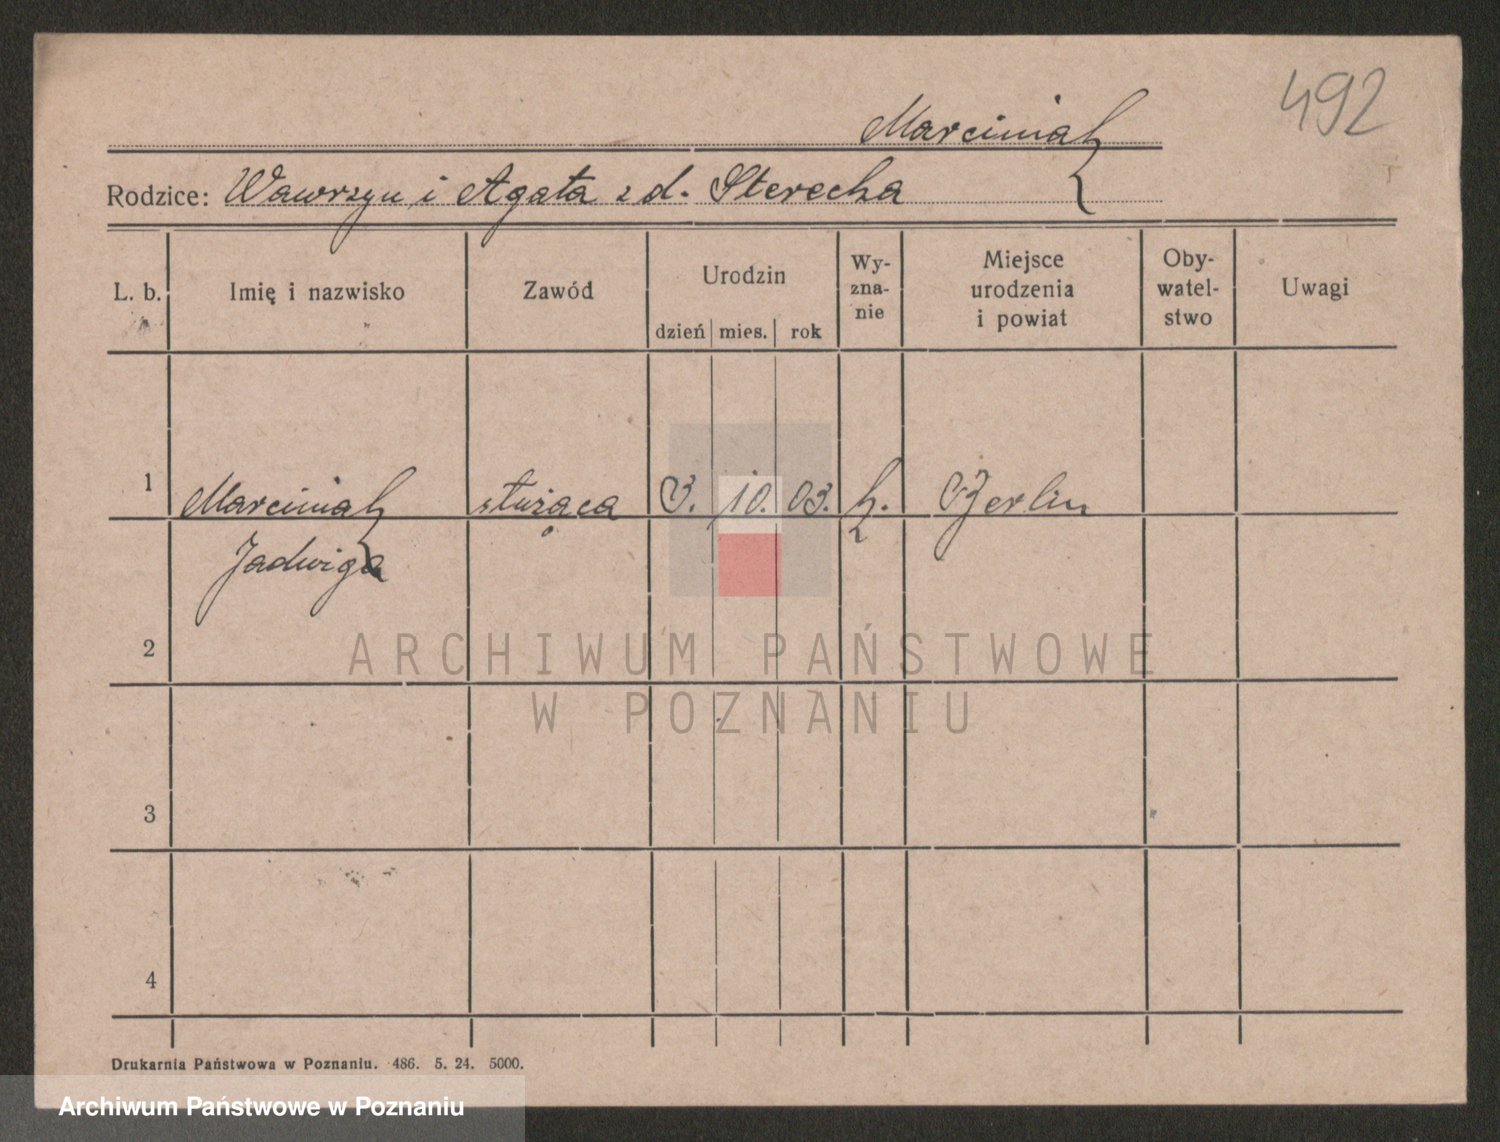 492
Marciniak
Rodzice: Wawrzyn i Agata z d. Sterecka
L. b. Imię i nazwisko Zawód Urodzin dzień mies. rok Wy-zna-nie Miejsce urodzenia i powiat Oby-watel-stwo Uwagi
1 Marciniak służąca 3. 10. 03. k. Berlin
Jadwiga
2
3
4
ARCHIWUM PAŃSTWOWE
W POZNANIU
Drukarnia Państwowa w Poznaniu. 486. 5. 24. 5000.
Archiwum Państwowe w Poznaniu